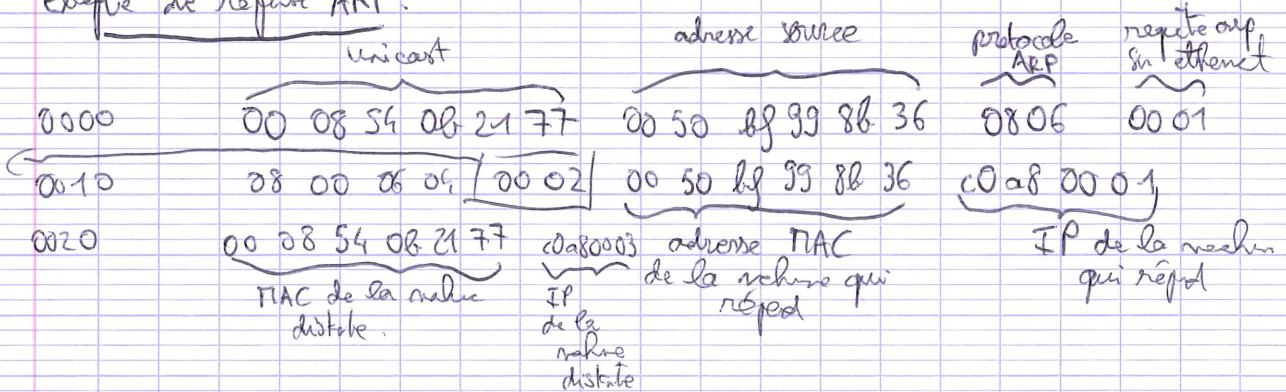 exemple de réponse ARP :
unicast adresse source protocole ARP requête arp sur ethernet
0000 00 08 54 0b 21 77 00 50 bf 99 8b 36 0806 0001
0010 08 00 06 04 00 02 00 50 bf 99 8b 36 c0 a8 00 01
0020 00 08 54 0b 21 77 c0a80003 adresse MAC IP de la machine
de la machine qui qui répd
MAC de la machine IP répond
distante. de la
machine
distante